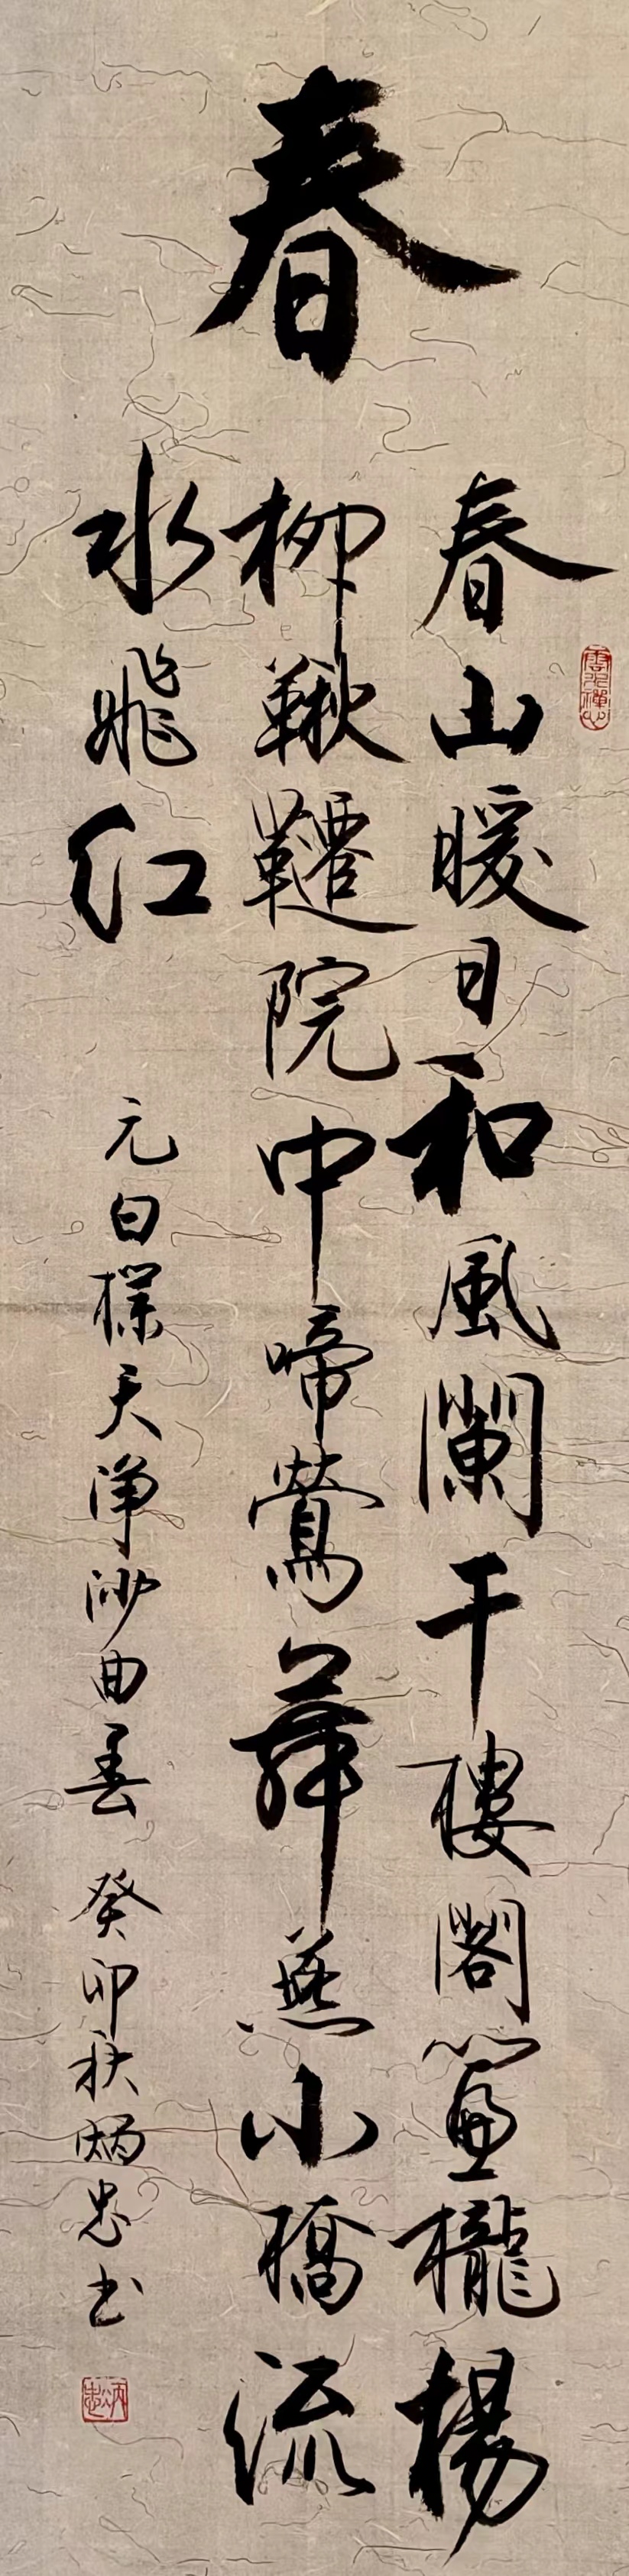 春
春山暖日和風闌干樓閣簾櫳楊
柳鞦韆院中啼鶯舞燕小橋流
水飛紅
元白樸天淨沙曲春 癸卯秋炳忠书
炳忠